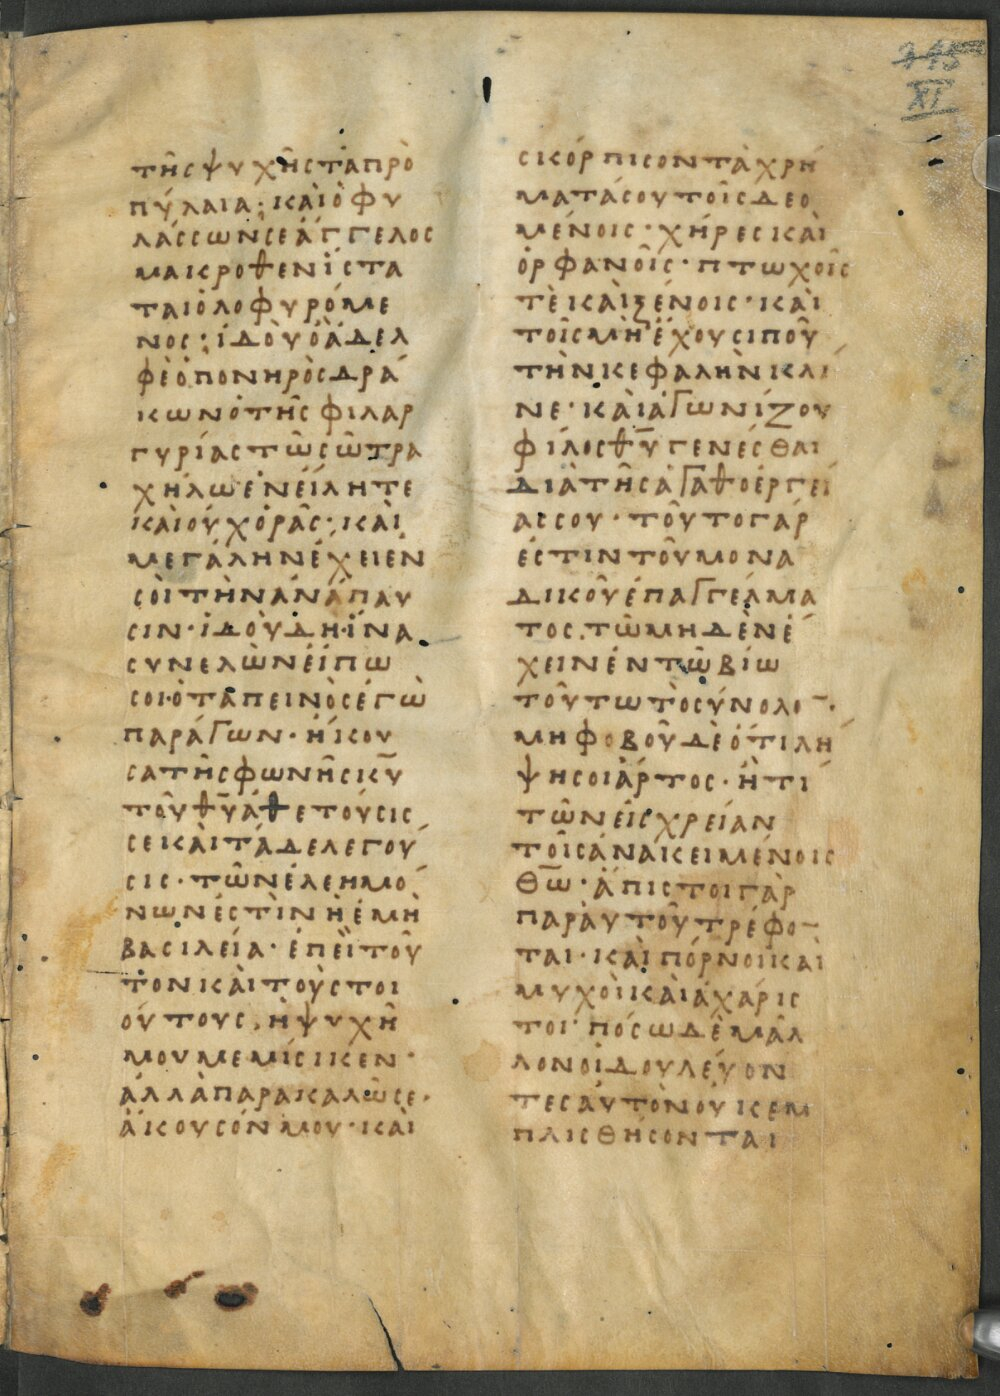 715
XI
τῆςψυχῆςτὰπρὸ
πύλαια· καὶὁφυ
λάσσωνσεἄγγελος
μακροθενἵστα
ταιὀλοφυρόμε
νος· ἰδοὺὁἀδελ
φὲὁπονηρὸςδρά
κωνὁτῆςφιλαρ
γυρίαςτῶσῶτρα
χήλωἐνείλητε
καὶοὐχὁρᾶς· καὶ
μεγάληνἔχειἐν
σοὶτὴνἀνάπαυ
σιν· ἰδοὺδὴ·ἵνα
συνελὼνεἴπω
σοι·ὁταπεινὸςἐγὼ
παράγων· ἤκου
σατῆςφωνῆςκ̅υ̅
τοῦθ̅υ̅ἀθετούσις
σεκαὶτάδελεγού
σις· τῶνἐλεημό
νωνἐστὶνἡἐμὴ
βασιλεία· ἐπεὶτοῦ
τονκαὶτοὺςτοι
ούτους, ἡψυχή
μουμεμίσικεν·
ἀλλὰπαρακαλῶσε·
ἄκουσόνμου· καὶ
σκόρπισοντὰχρή
ματάσουτοῖςδεο
μένοις· χήρεςκαὶ
ὀρφανοῖς· πτωχοῖς
τὲκαὶξένοις· καὶ
τοῖςμὴἔχουσιποῦ
τὴνκεφαλὴνκλί
νε· καὶἀγωνίζου
φίλοςθ̅υ̅γενέσθαι
διὰτῆςἀγαθοεργεί
αςσου· τοῦτογάρ
ἐστιντοῦμονα
δικοῦἐπαγγέλμα
τος, τῶμηδὲνἔ
χεινἐντῶβίω
τούτωτὸσύνολο̅·
μηφοβοῦδὲὅτιλή
ψησοιἄρτος· ἤτι
τῶνεἰςχρείαν
τοῖςἀνακειμένοις
θ̅ω̅· ἄπιστοιγὰρ
παρ᾽αὐτοῦτρέφο̅
ται· καὶπόρνοικαὶ
μυχοὶκαὶἀχάρις
τοι· πόσωδὲμᾶλ
λονοἱδουλεύον
τεςαὐτὸνοὐκἐμ
πλισθήσονται